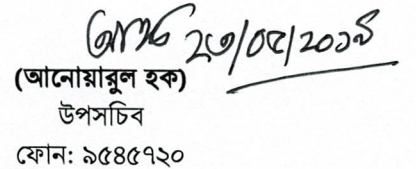 ২৩/০৫/২০১৯
(আনোয়ারুল হক)
উপসচিব
ফোন: ৯৫৪৫৭২০